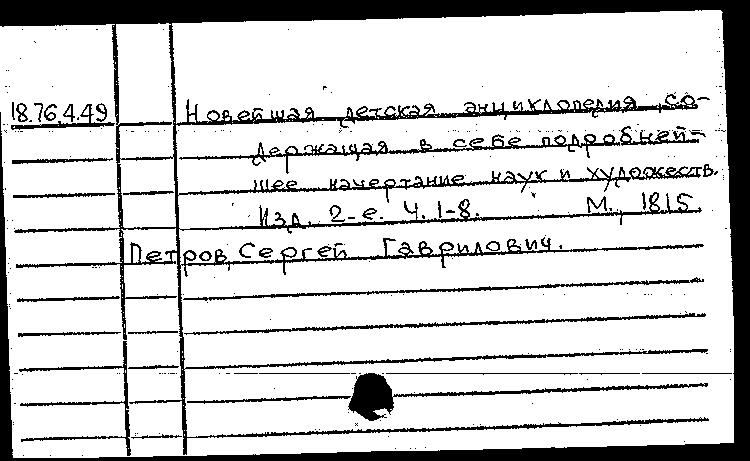 18.76.4.49 Новейшая детская энциклопедия, со-
держащая в себе подробней-
шее начертание наук и художеств.
Изд. 2-е. Ч. 1-8. М., 1815.
Петров, Сергей Гаврилович.